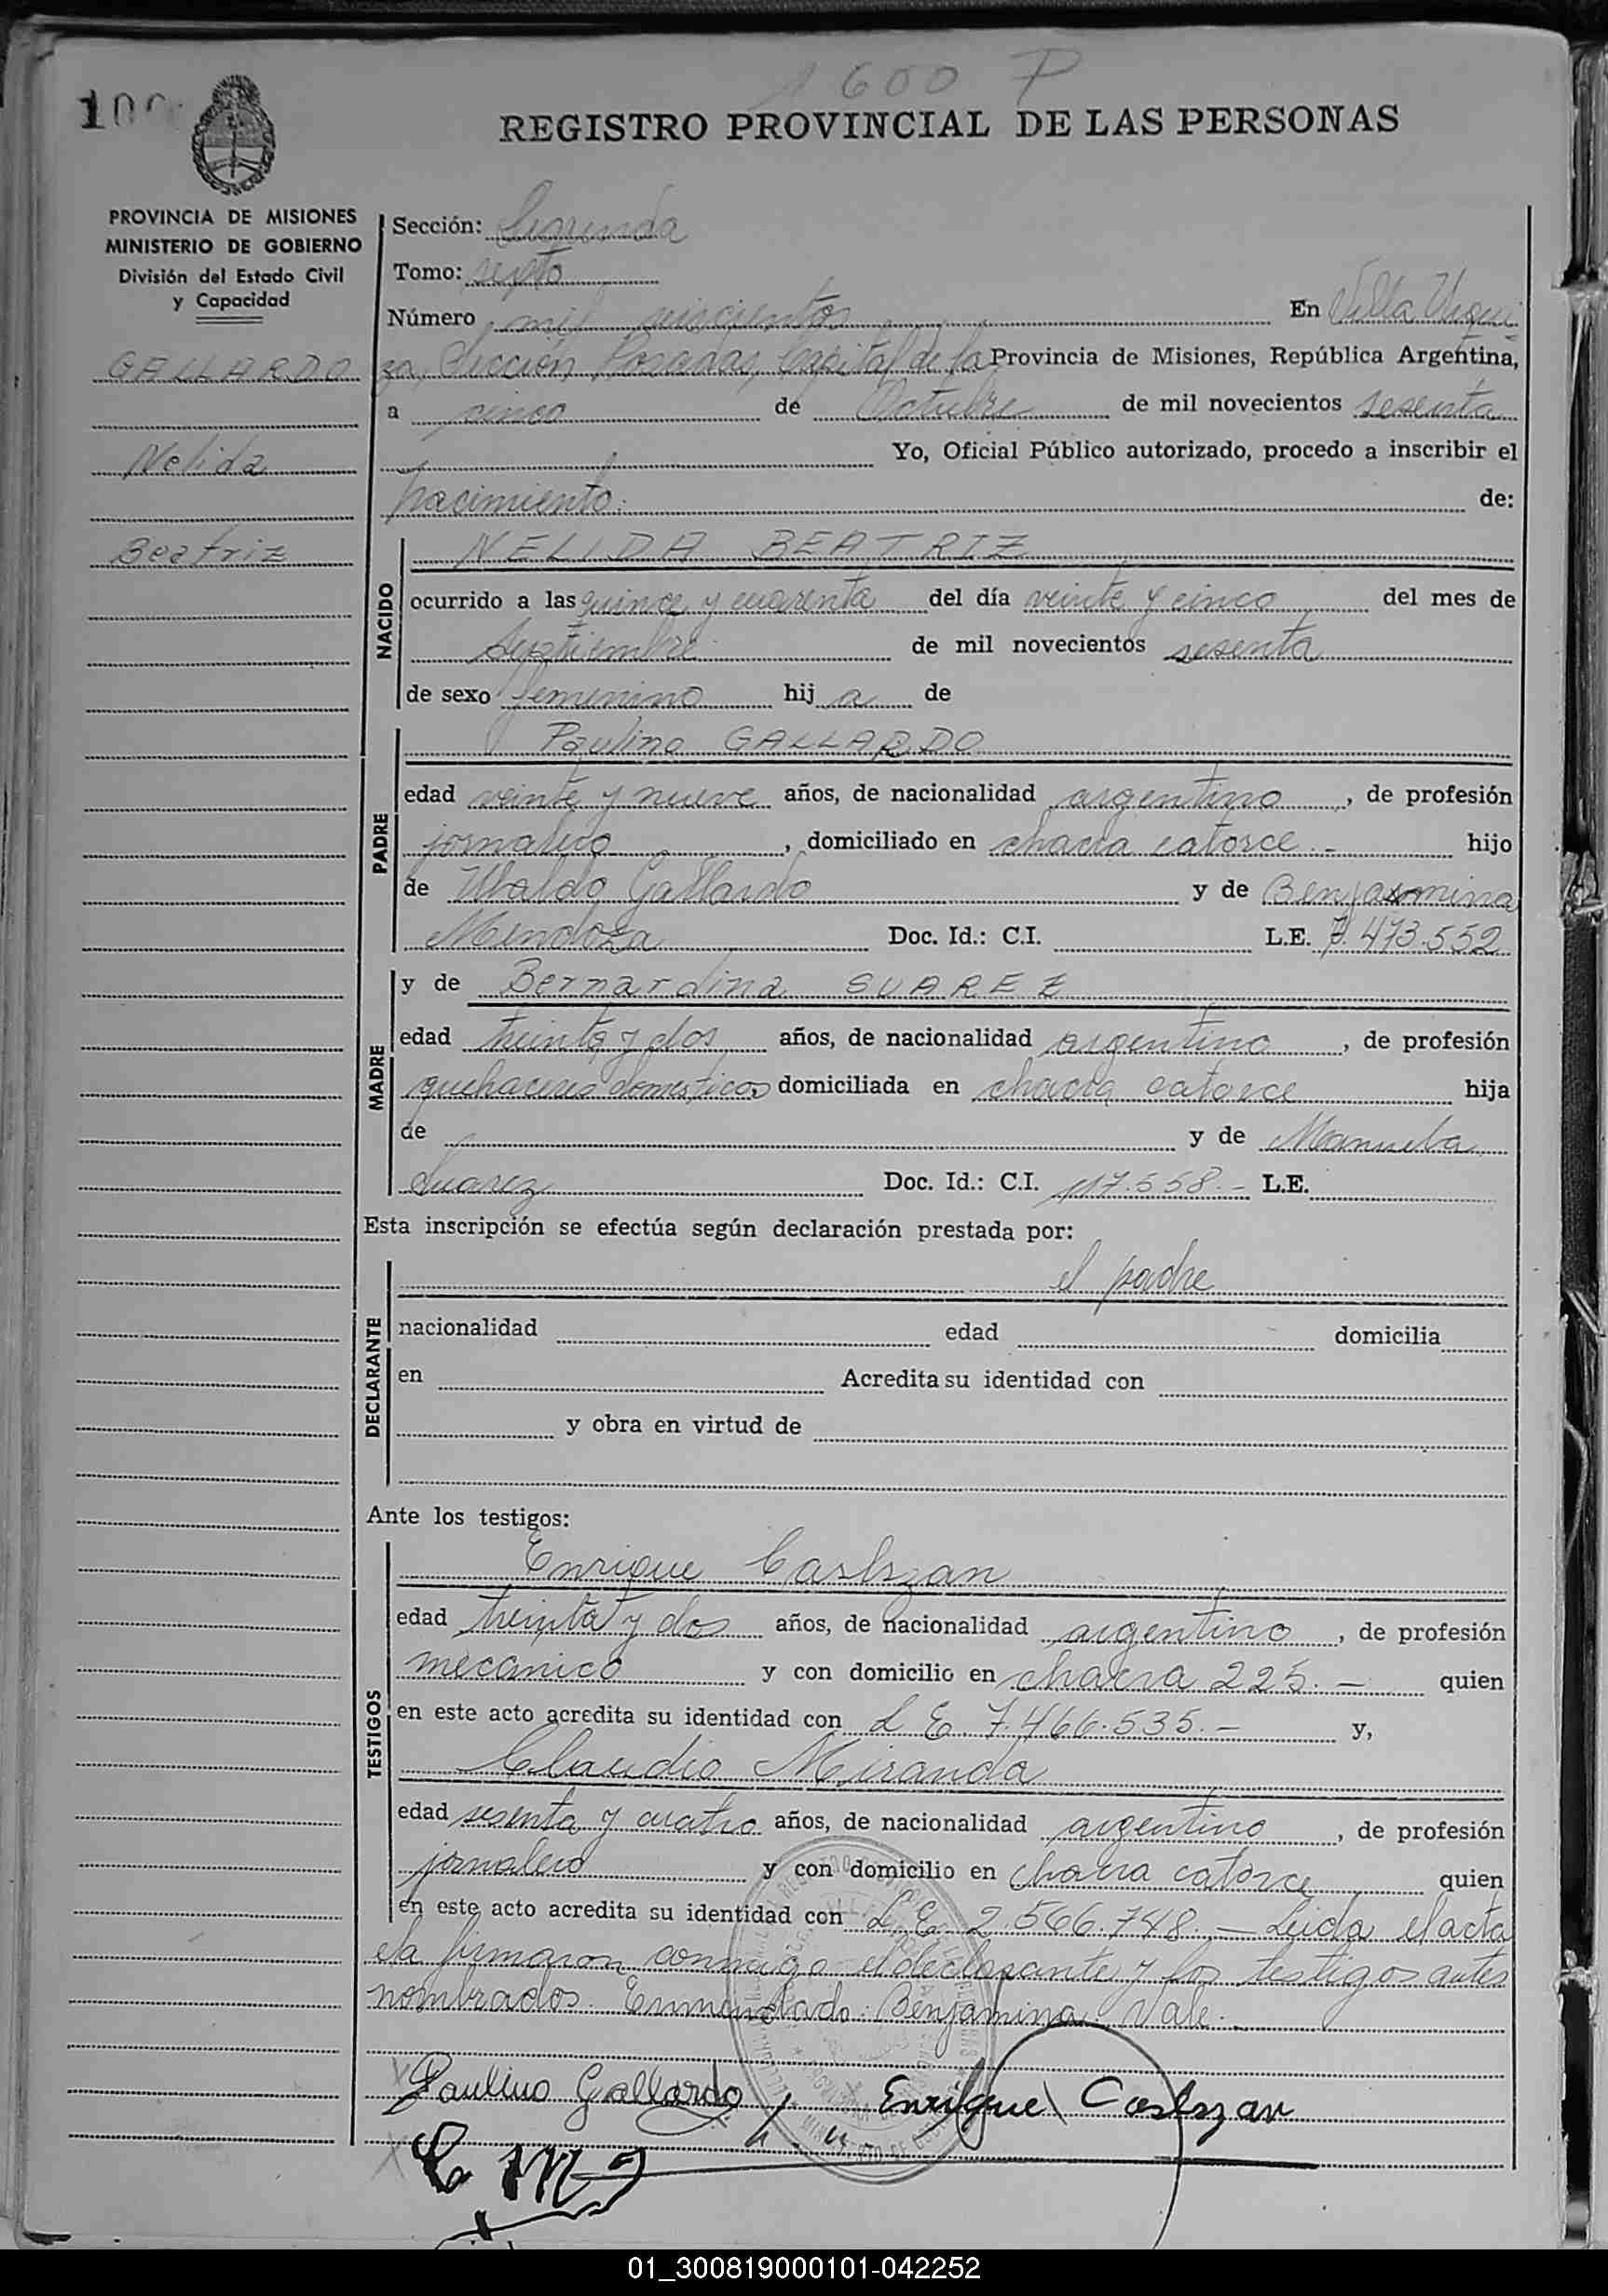 1600 P
100
REGISTRO PROVINCIAL DE LAS PERSONAS
PROVINCIA DE MISIONES
MINISTERIO DE GOBIERNO
División del Estado Civil
y Capacidad
GALLARDO
Nelida
Beatriz
Sección: Segunda
Tomo: septo
Número mil seiscientos En Villa Urqui-
za, Sección Posadas, Capital de la Provincia de Misiones, República Argentina,
a cinco de Octubre de mil novecientos sesenta
Yo, Oficial Público autorizado, procedo a inscribir el
nacimiento de:
NACIDO
NELIDA BEATRIZ
ocurrido a las quince y cuarenta del día veinte y cinco del mes de
Septiembre de mil novecientos sesenta
de sexo femenino hij a de
PADRE
Paulino GALLARDO
edad veinte y nueve años, de nacionalidad argentino, de profesión
jornalero, domiciliado en chacra catorce.- hijo
de Ubaldo Gallardo y de Benjamina
Mendoza Doc. Id.: C.I. L.E. 7.473.552
MADRE
y de Bernardina SUAREZ
edad treinta y dos años, de nacionalidad argentina, de profesión
quehaceres domesticos domiciliada en chacra catorce hija
de y de Manuela
Suarez Doc. Id.: C.I. 117.558.- L.E.
Esta inscripción se efectúa según declaración prestada por:
DECLARANTE
el padre
nacionalidad edad domicilia
en Acredita su identidad con
y obra en virtud de
Ante los testigos:
TESTIGOS
Enrique Caslszan
edad treinta y dos años, de nacionalidad argentino, de profesión
mecanico y con domicilio en chacra 225.- quien
en este acto acredita su identidad con L E. 7.466.535.- y,
Claudio Miranda
edad sesenta y cuatro años, de nacionalidad argentino, de profesión
jornalero y con domicilio en chacra catorce quien
en este acto acredita su identidad con L.E. 2.566.748.- Leida el acta
ela firmaron conmigo el declarante y los testigos antes
nombrados. Enmendado: Benjamina: Vale.-
Paulino Gallardo Enrique Caslszan
01_300819000101-042252